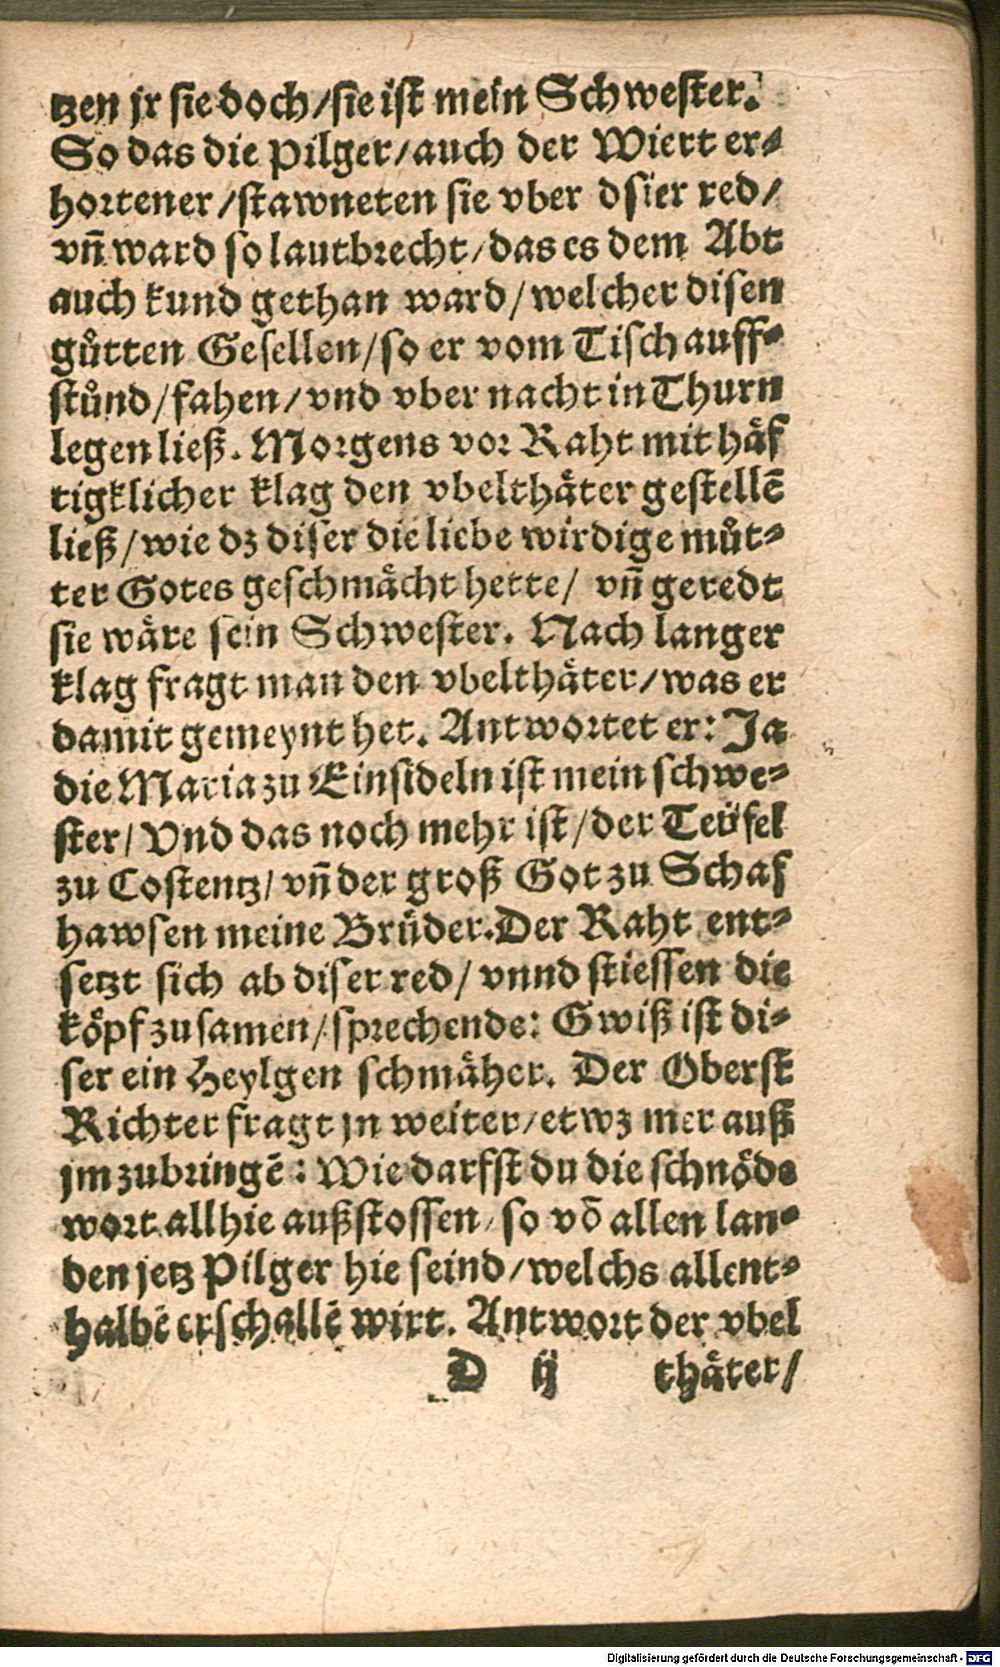 tzen jr sie doch/sie ist mein Schwester.
So das die Pilger/auch der Wiert er⸗
hortener/stawneten sie vber dsier red/
vñ ward so lautbrecht/das es dem Abt
auch kund gethan ward/welcher disen
gůtten Gesellen/so er vom Tisch auff⸗
stůnd/fahen/vnd vber nacht in Thurn
legen ließ. Morgens vor Raht mit häf
tigklicher klag den vbelthäter gestellē
ließ/wie dz diser die liebe wirdige můt⸗
ter Gotes geschmächt hette/ vñ geredt
sie wäre sein Schwester. Nach langer
klag fragt man den vbelthäter/was er
damit gemeynt het. Antwortet er: Ja
die Maria zu Einsideln ist mein schwe⸗
ster/ Vnd das noch mehr ist/der Teüfel
zu Costentz/ vñ der groß Got zu Schaf
hawsen meine Brüder. Der Raht ent⸗
setzt sich ab diser red/ vnnd stiessen die
köpf zusamen/sprechende: Gwiß ist di⸗
ser ein Heylgen schmäher. Der Oberst
Richter fragt jn weiter/etwz mer auß
jm zubringē: Wie darfst du die schnöde
wort allhie außstossen/so võ allen lan⸗
den jetz Pilger hie seind/welchs allent⸗
halbē erschallē wirt. Antwort der vbel
D ij thäter/
Digitalisierung gefördert durch die Deutsche Forschungsgemeinschaft - DFG